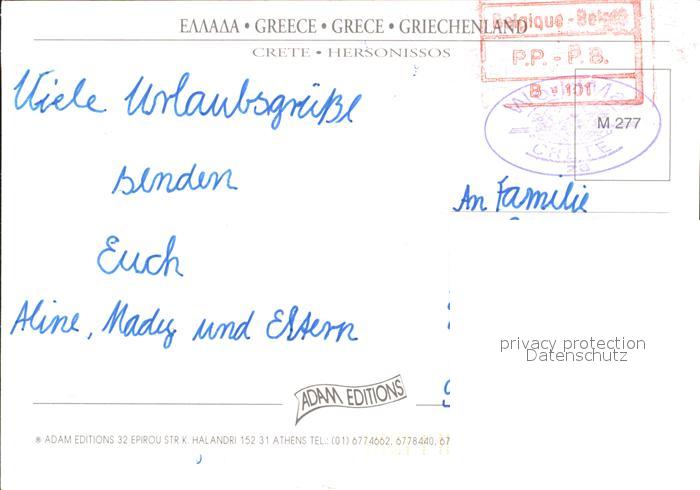 ΕΛΛΑΔΑ • GREECE • GRECE • GRIECHENLAND
CRETE • HERSONISSOS
Belgique - België
P.P. - P.B.
B - 101
M 277
CRETE
Viele Urlaubsgrüße
senden
Euch
Aline, Mady und Eltern
An Familie
privacy protection
Datenschutz
ADAM EDITIONS
® ADAM EDITIONS 32 EPIROU STR K. HALANDRI 152 31 ATHENS TEL.: (01) 6774662, 6778440, 67